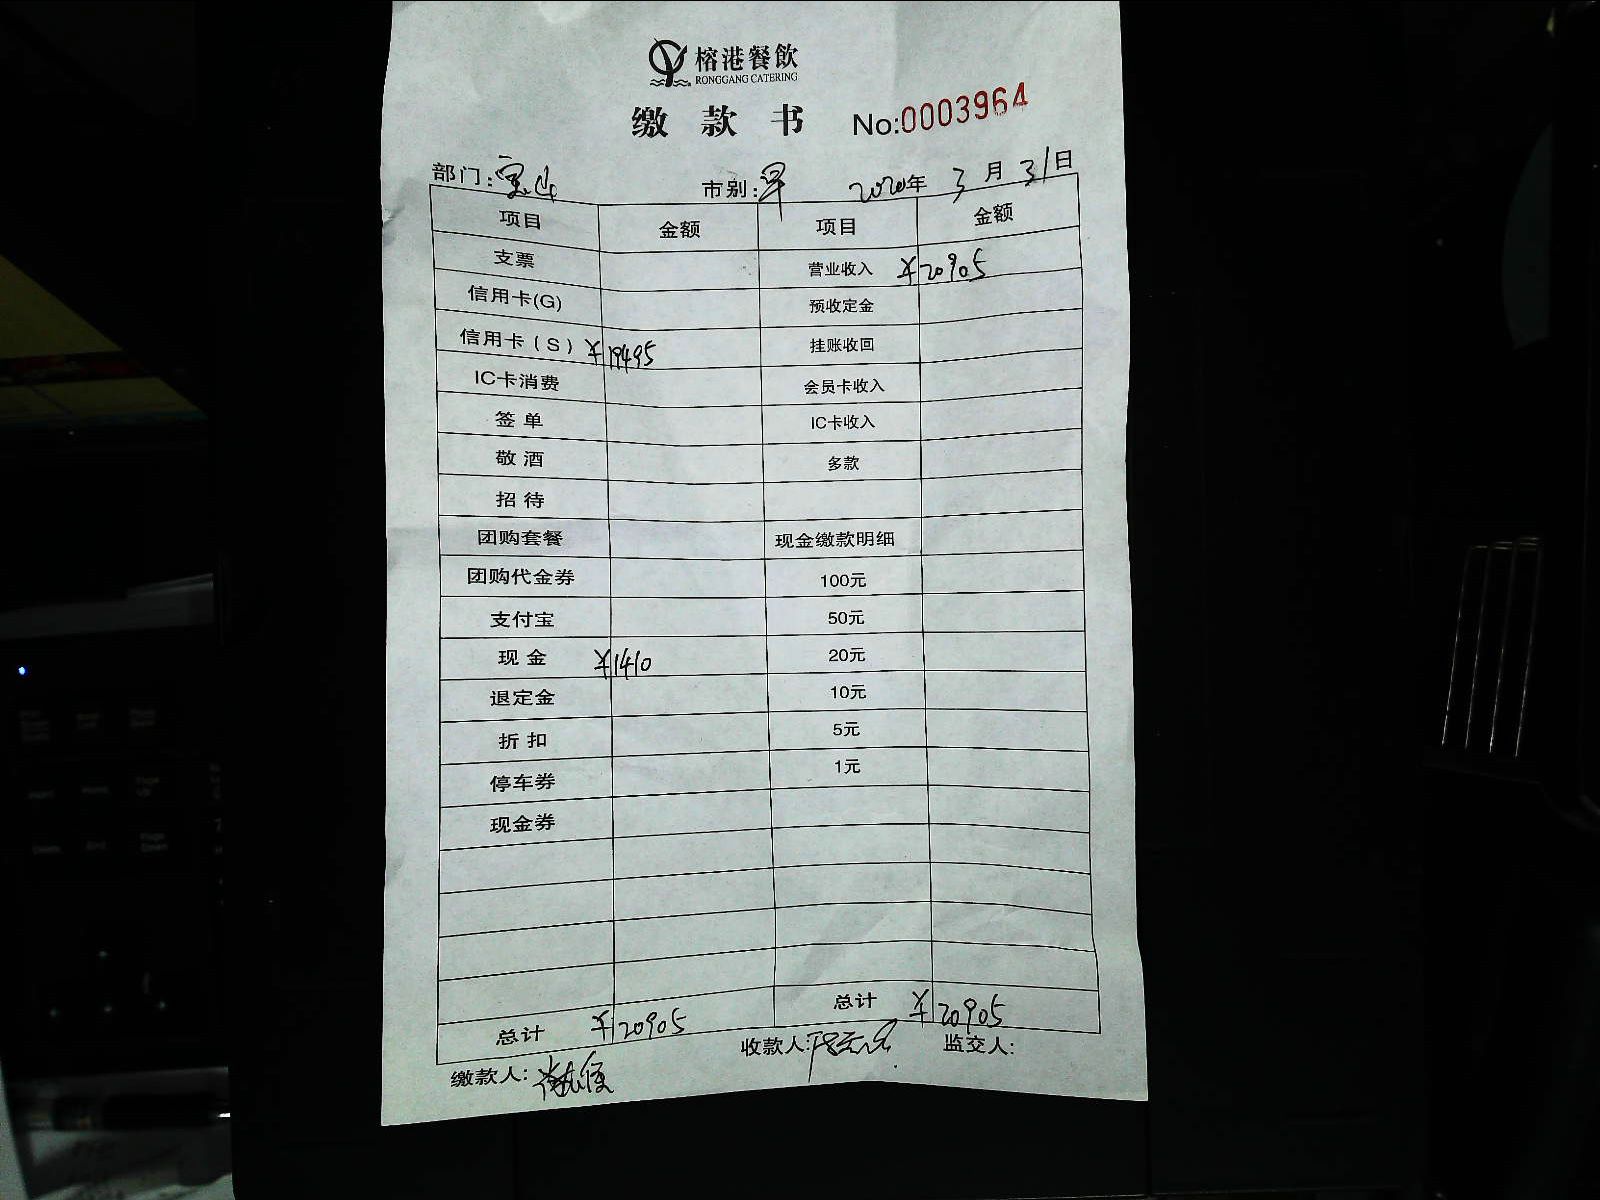 榕港餐飲
RONGGANG CATERING
缴款书 No:0003964
部门:宝山 市别:早 2020年3月31日
项目 金额 项目 金额
支票 营业收入 ¥20905
信用卡(G) 预收定金
信用卡(S) ¥19495 挂账收回
IC卡消费 会员卡收入
签单 IC卡收入
敬酒 多款
招待
团购套餐 现金缴款明细
团购代金券 100元
支付宝 50元
现金 ¥1410 20元
退定金 10元
折扣 5元
停车券 1元
现金券
总计 ¥20905 总计 ¥20905
缴款人: 收款人: 监交人: